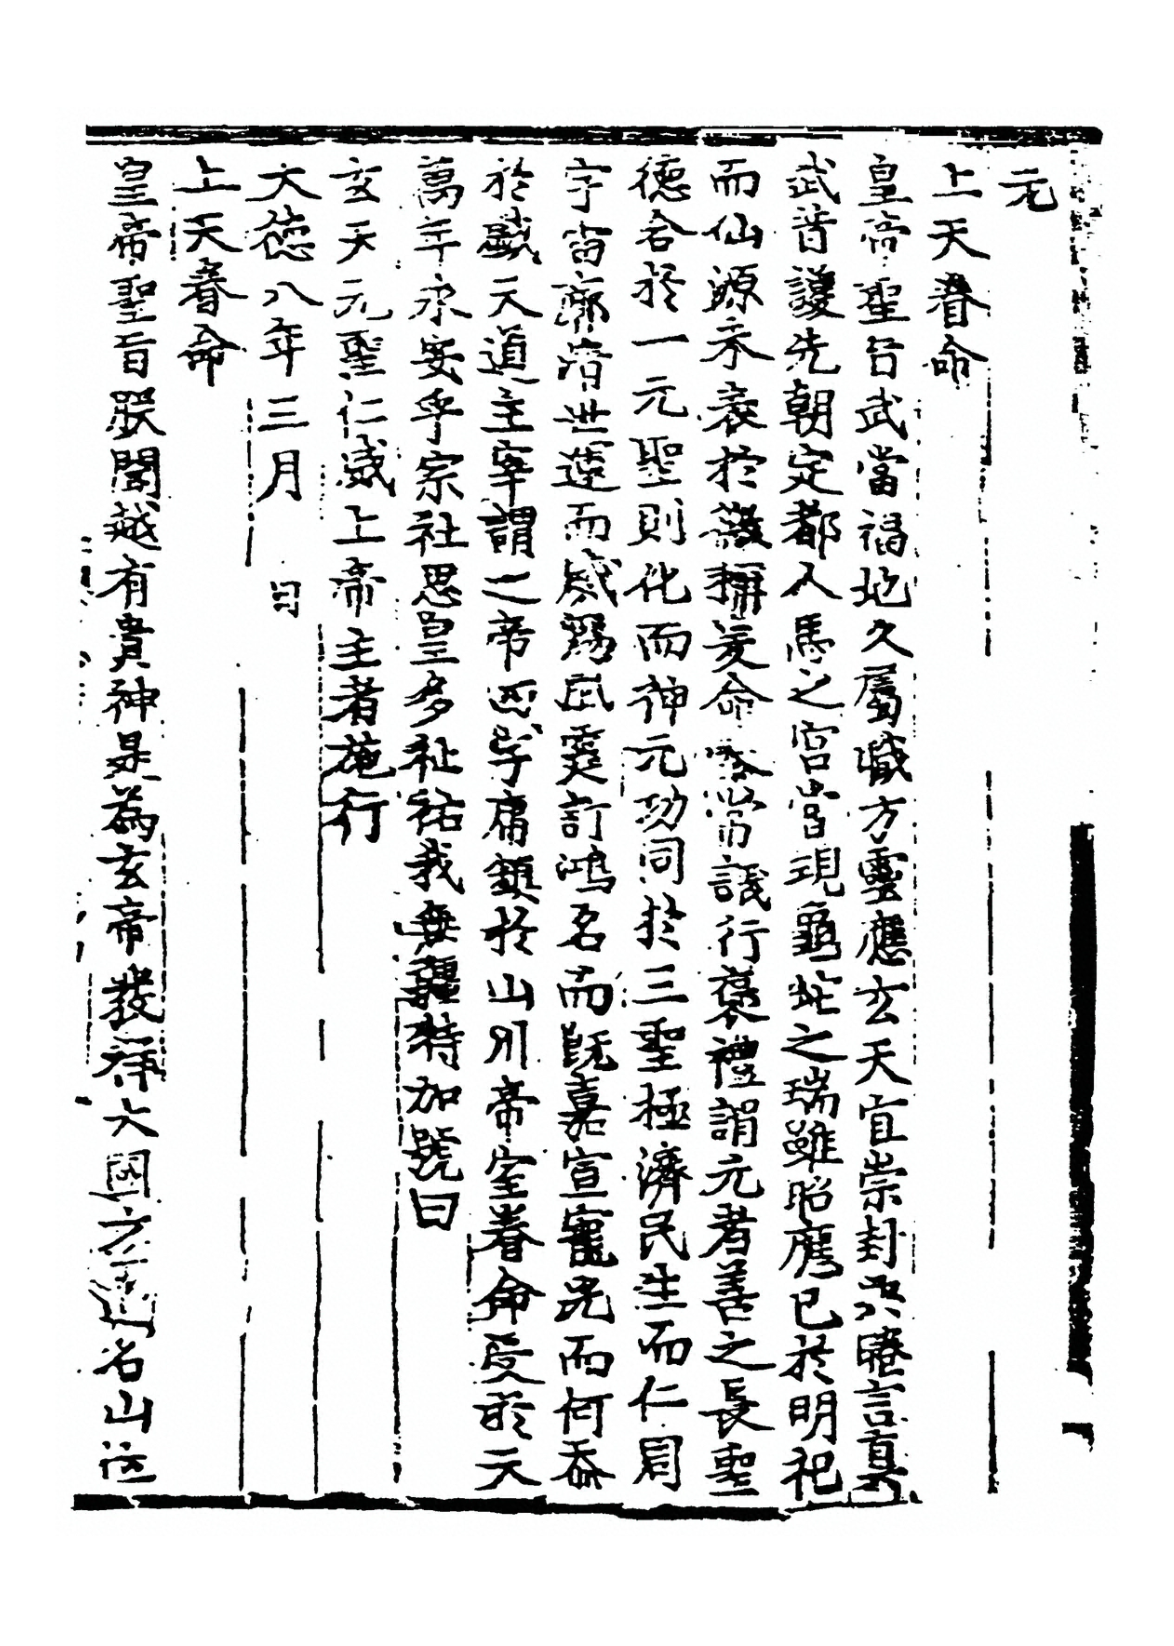 元
上天眷命
皇帝聖旨武當福地久屬職方靈應玄天宜崇封典睠言真
武昔護先朝定都人馬之宮嘗現龜蛇之瑞雖昭應已於明祀
而仙源未表於徽稱爰命奉常議行褒禮謂元者善之長聖
德合於一元聖則化而神元功同於三聖極濟民生而仁周
宇宙廓清世運而威暢風霆訂鴻名而既嘉宣寵光而何忝
於戲天道主宰謂之帝四字庸鎮於山川帝室眷命受於天
萬年永安乎宗社思皇多祉祐我無疆特加號曰
玄天元聖仁威上帝主者施行
大德八年三月 日
上天眷命
皇帝聖旨朕聞越有貴神是為玄帝發祥大國方 名山迄